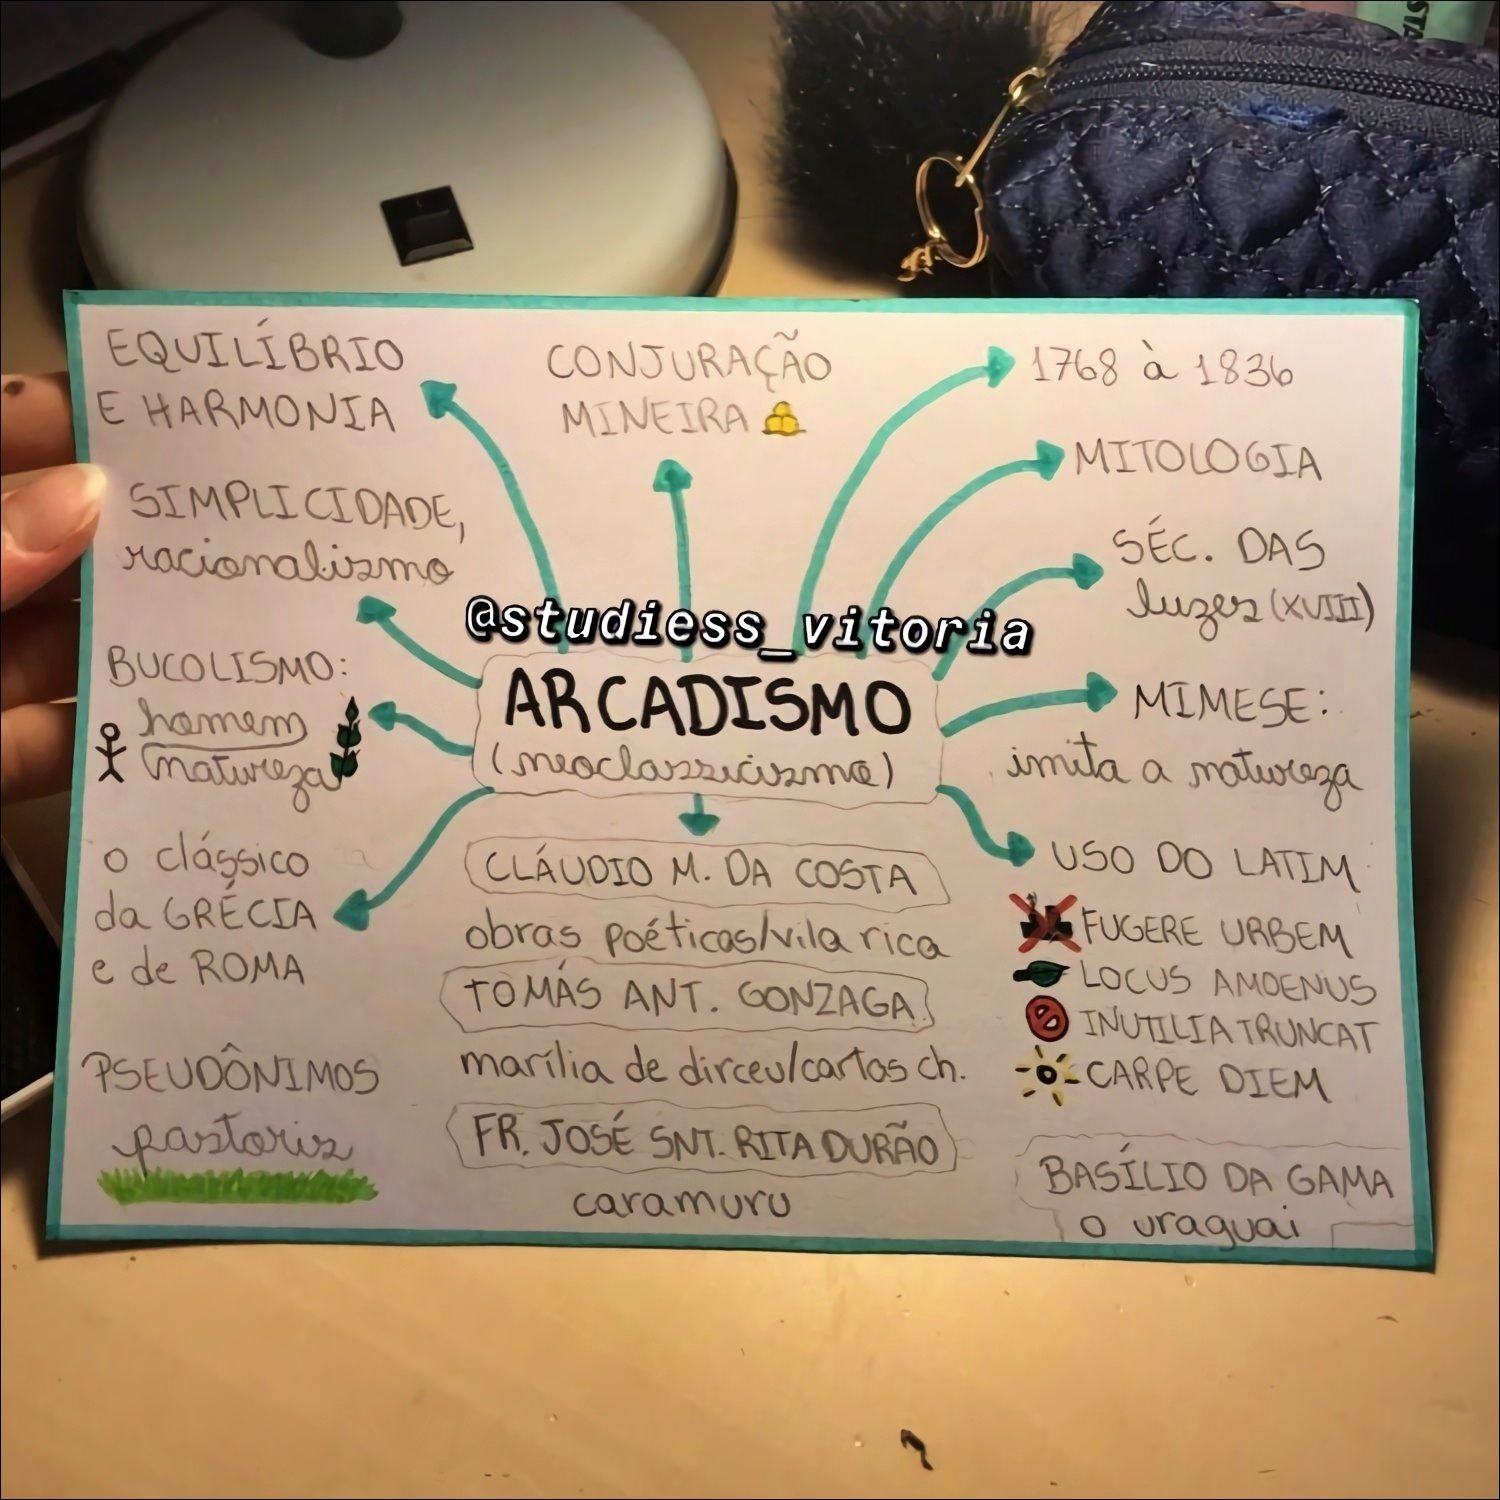 EQUILÍBRIO
E HARMONIA
CONJURAÇÃO
MINEIRA
1768 à 1836
MITOLOGIA
SIMPLICIDADE,
racionalismo
SÉC. DAS
luzes (XVIII)
@studiess_vitoria
BUCOLISMO:
homem
natureza
ARCADISMO
(neoclassicismo)
MIMESE:
imita a natureza
o clássico
da GRÉCIA
e de ROMA
CLÁUDIO M. DA COSTA
obras poéticas/vila rica
TOMÁS ANT. GONZAGA
marília de dirceu/cartas ch.
FR. JOSÉ SNT. RITA DURÃO
caramuru
USO DO LATIM
FUGERE URBEM
LOCUS AMOENUS
INUTILIA TRUNCAT
CARPE DIEM
PSEUDÔNIMOS
pastoris
BASÍLIO DA GAMA
o uraguai